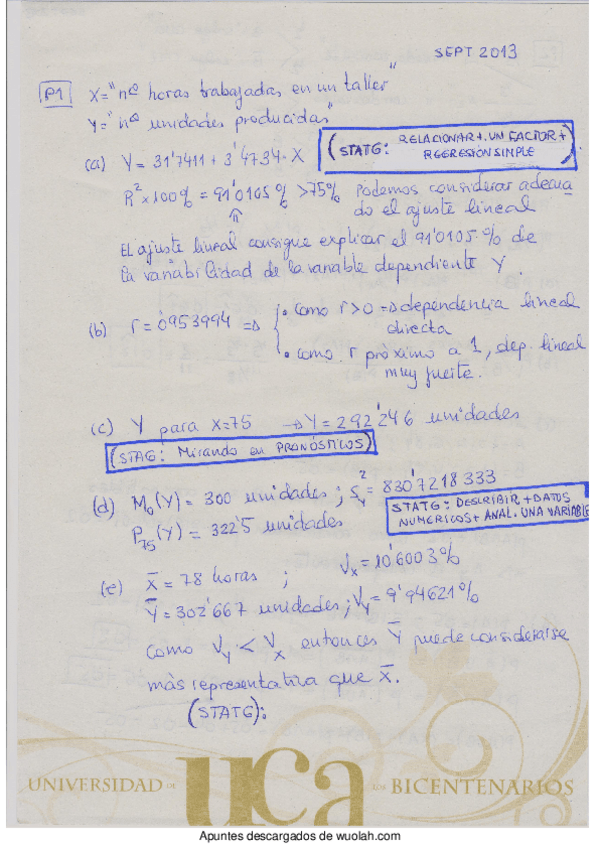 SEPT 2013
P1 X = "nº horas trabajadas en un taller"
Y = "nº unidades producidas"
(STATG: RELACIONAR + UN FACTOR + REGRESIÓN SIMPLE)
(a) Y = 31'7411 + 3'4734 · X
R² × 100% = 91'0105% > 75% Podemos considerar adecua
do el ajuste lineal
El ajuste lineal consigue explicar el 91'0105% de
la variabilidad de la variable dependiente Y.
(b) r = 0'953994 ⇒ { • Como r > 0 ⇒ dependencia lineal
directa
• como r próximo a 1, dep. lineal
muy fuerte.
(c) Y para X=75 → Y = 292'246 unidades
(STAG: Mirando en PRONÓSTICOS)
(d) M₀(Y) = 300 unidades ; S²y = 830'7218333
P₇₅(Y) = 322'5 unidades
STATG: DESCRIBIR + DATOS
NUMERICOS + ANAL. UNA VARIABLE
(e) X̄ = 78 horas ; Vx = 10'6003%
Ȳ = 302'667 unidades ; Vy = 9'94621%
como Vy < Vx entonces Ȳ puede considerarse
más representativa que X̄.
(STATG):
UNIVERSIDAD DE uca LOS BICENTENARIOS
Apuntes descargados de wuolah.com